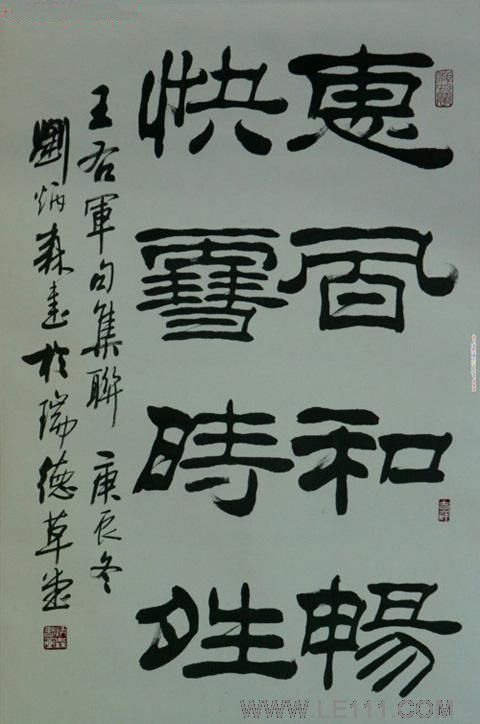 惠風和暢
快雪時夝
王右軍句集聯 庚辰冬
劉炳森書於瑞德草堂
WWW.LE111.COM